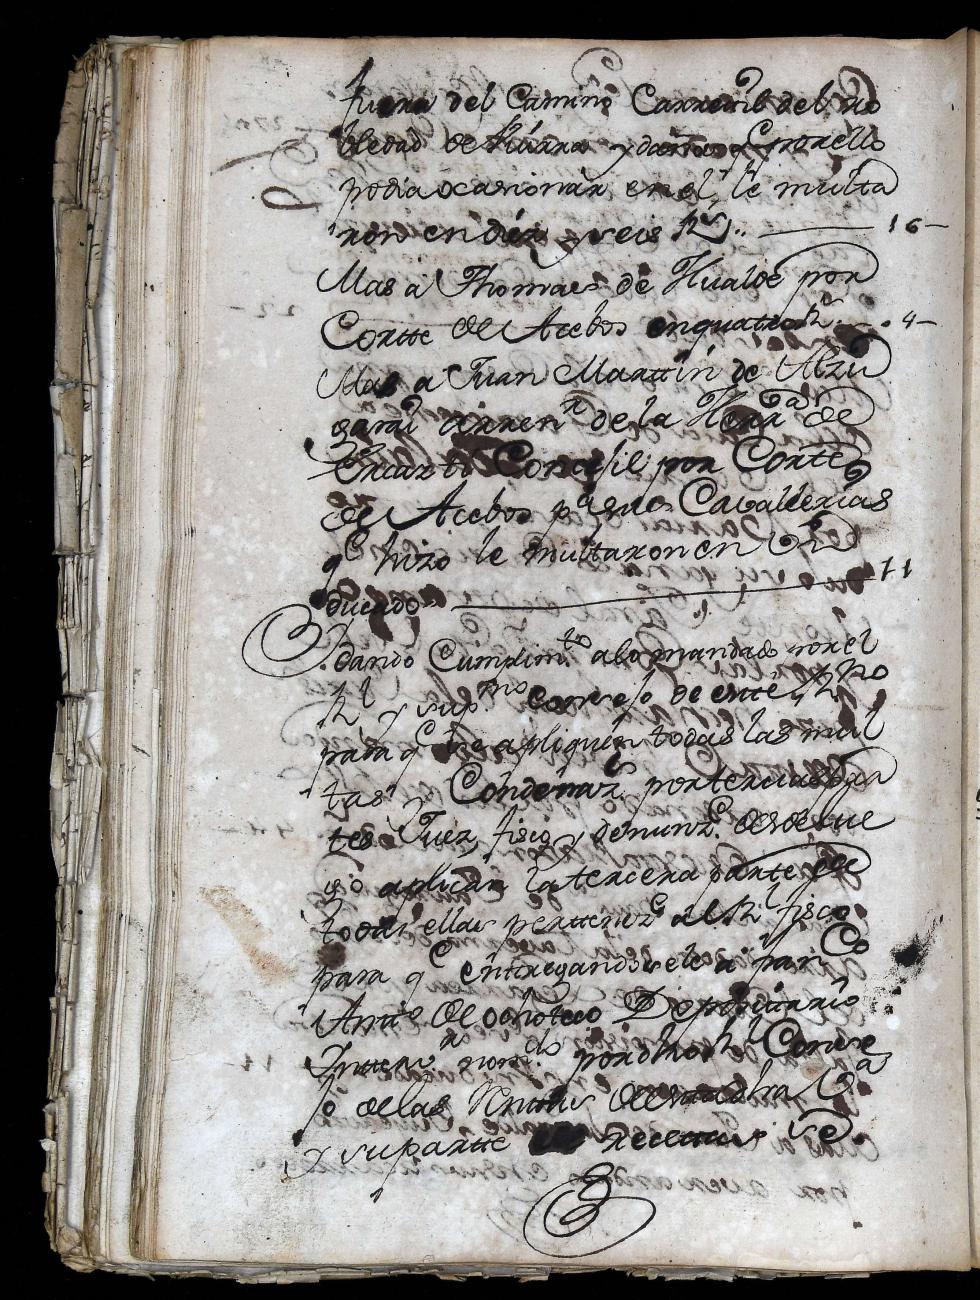 fuera del Camino Carretil del ro
bledal de y daños q^e por ello
podia ocasionar en el, le multa
ron en diez y seis R^s.. — 16—
Mas a Thomas de Hualde por
Corte de Acebos en quatro R^s. 4—
Mas a Juan Marttin de Alzu
garai Arren^r de la Herr^a de
Concejil por Corte
de Acebos p^a sus Cavallerias
q^e hizo le multaron en un
ducado — 11
Y dando Cumplim^to a lo mandado por el
R^l y sup^mo Consejo de este R^no
para q^e se apliquen todas las mul
tas y Condenaz^s por tercias p^a
tes Juez, fisco y denunz^r desde lue
go aplican la tercera parte de
todas ellas perttenez^te al R^l fisco
para q^e entregandosele a fran^co
Antt^o de ochoteco Depositario
Inttern^o nom^do por dho R^l Conse
jo de las Penas
y su partte